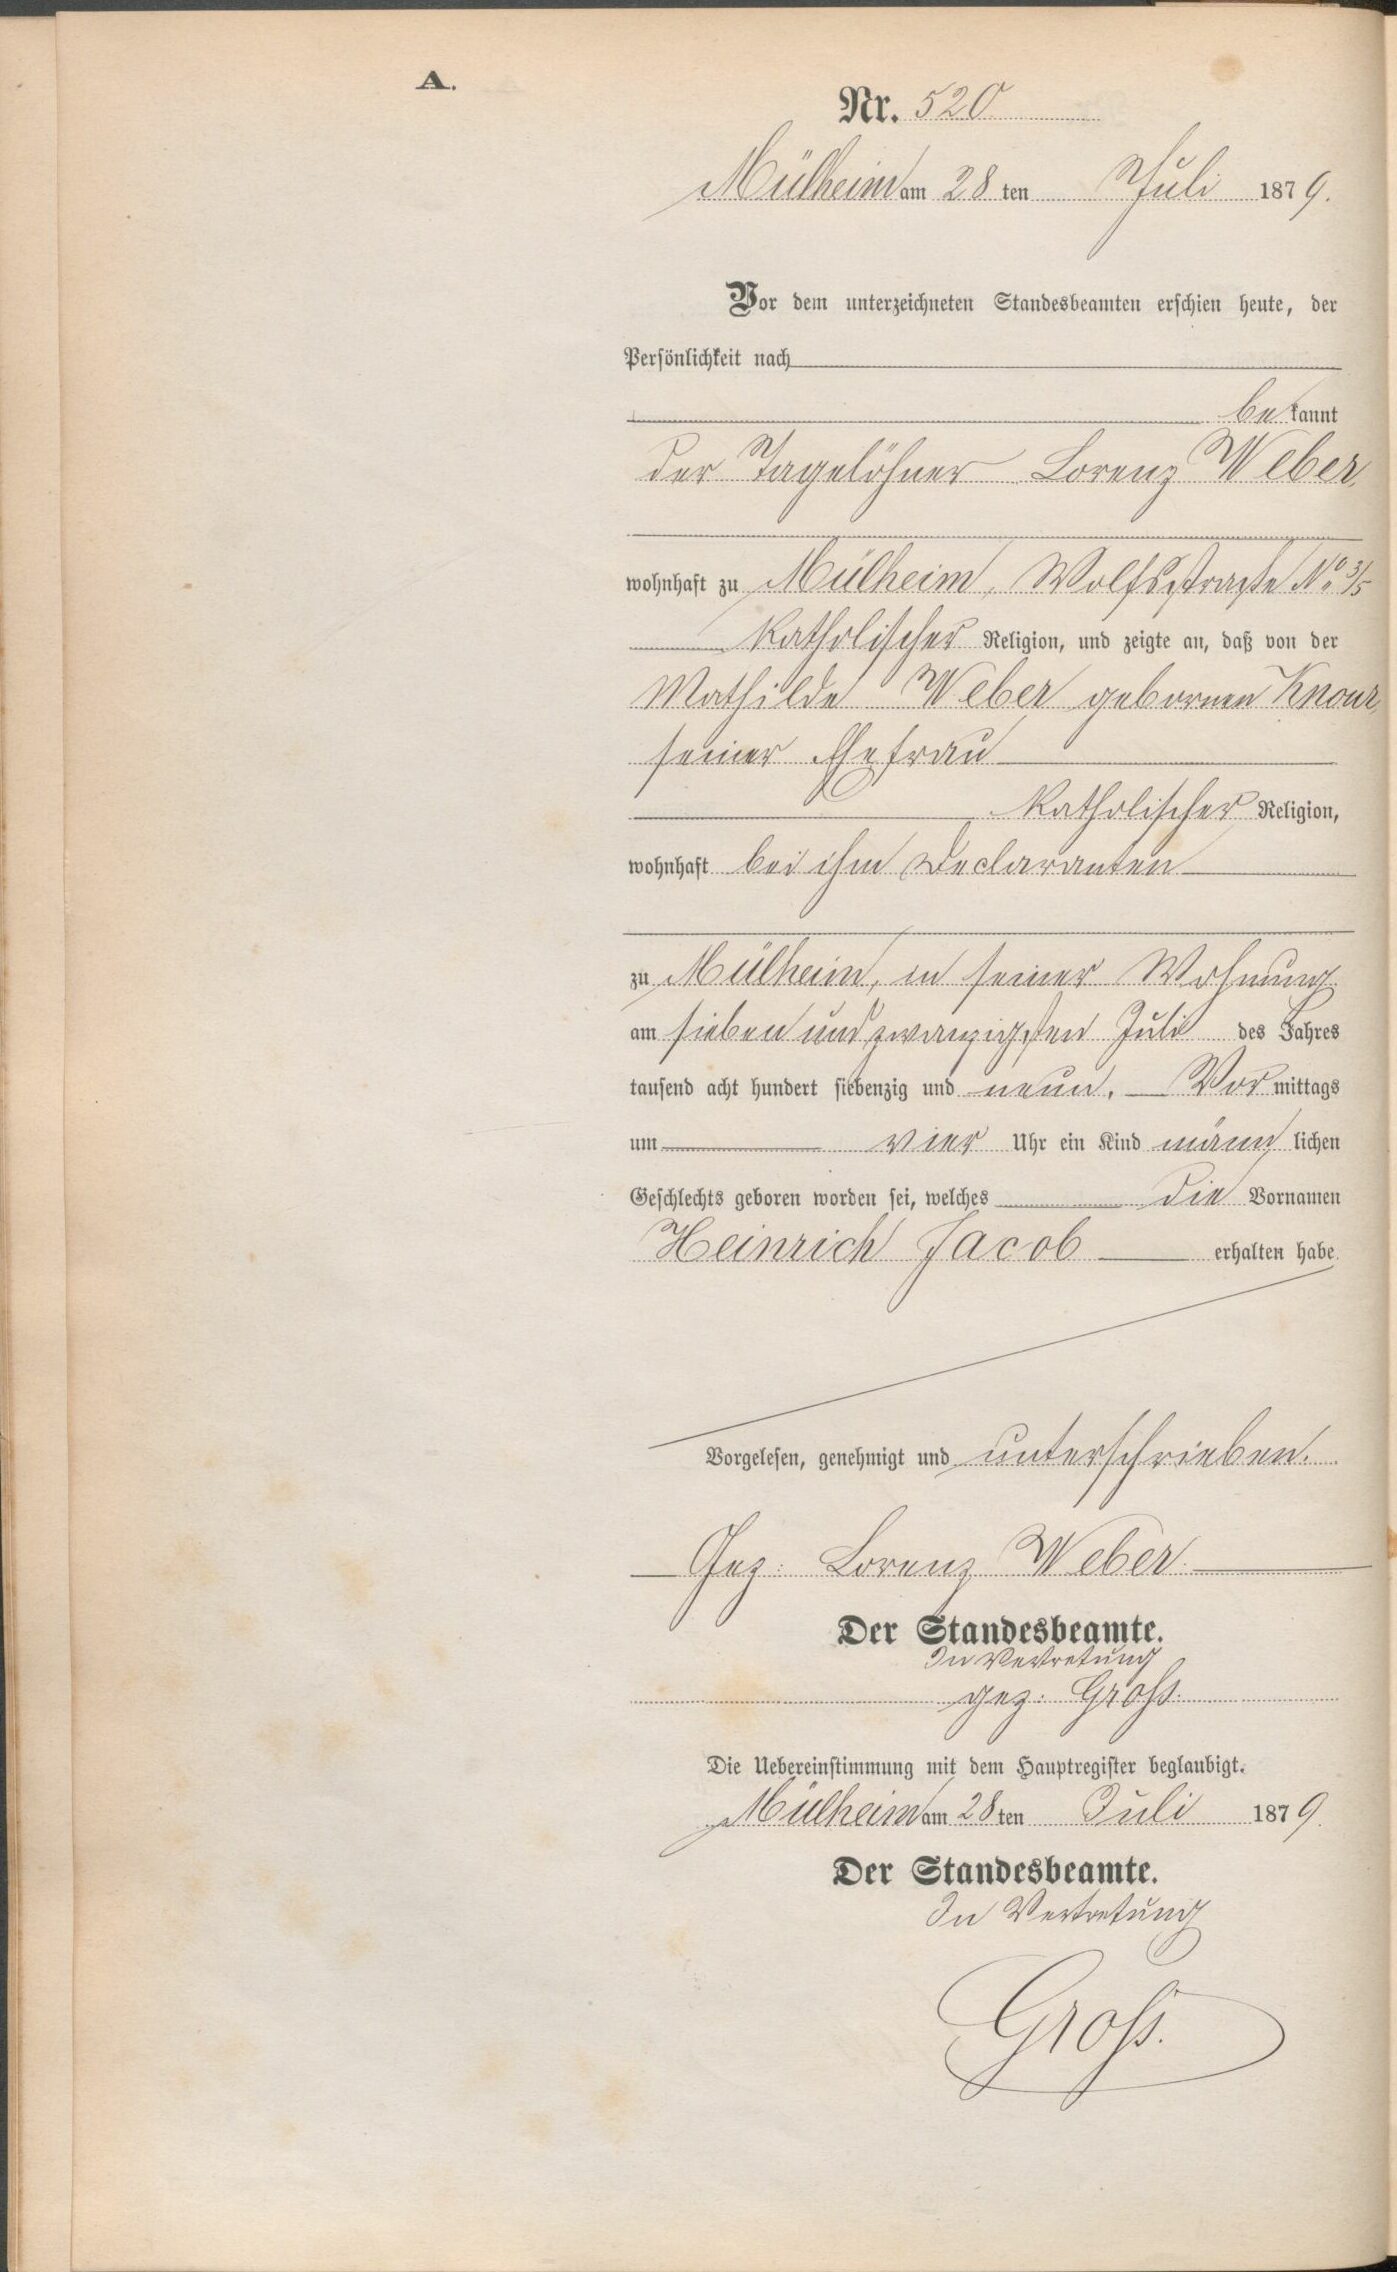 A.
Nr. 520
Mülheim am 28 ten Juli 1879.
Vor dem unterzeichneten Standesbeamten erschien heute, der
Persönlichkeit nach
bekannt
der Tagelöhner Lorenz Weber,
wohnhaft zu Mülheim, Wolfsstraße No 3/5
katholischer Religion, und zeigte an, daß von der
Mathilde Weber gebornen Knour,
seiner Ehefrau
katholischer Religion,
wohnhaft bei ihm Declaranten
zu Mülheim, in seiner Wohnung
am sieben und zwanzigsten Juli des Jahres
tausend acht hundert siebenzig und neun. Vormittags
um vier Uhr ein Kind männlichen
Geschlechts geboren worden sei, welches die Vornamen
Heinrich Jacob erhalten habe
Vorgelesen, genehmigt und unterschrieben.
Gez: Lorenz Weber
Der Standesbeamte.
In Vertretung
gez: Groß.
Die Uebereinstimmung mit dem Hauptregister beglaubigt.
Mülheim am 28 ten Juli 1879.
Der Standesbeamte.
In Vertretung
Groß.